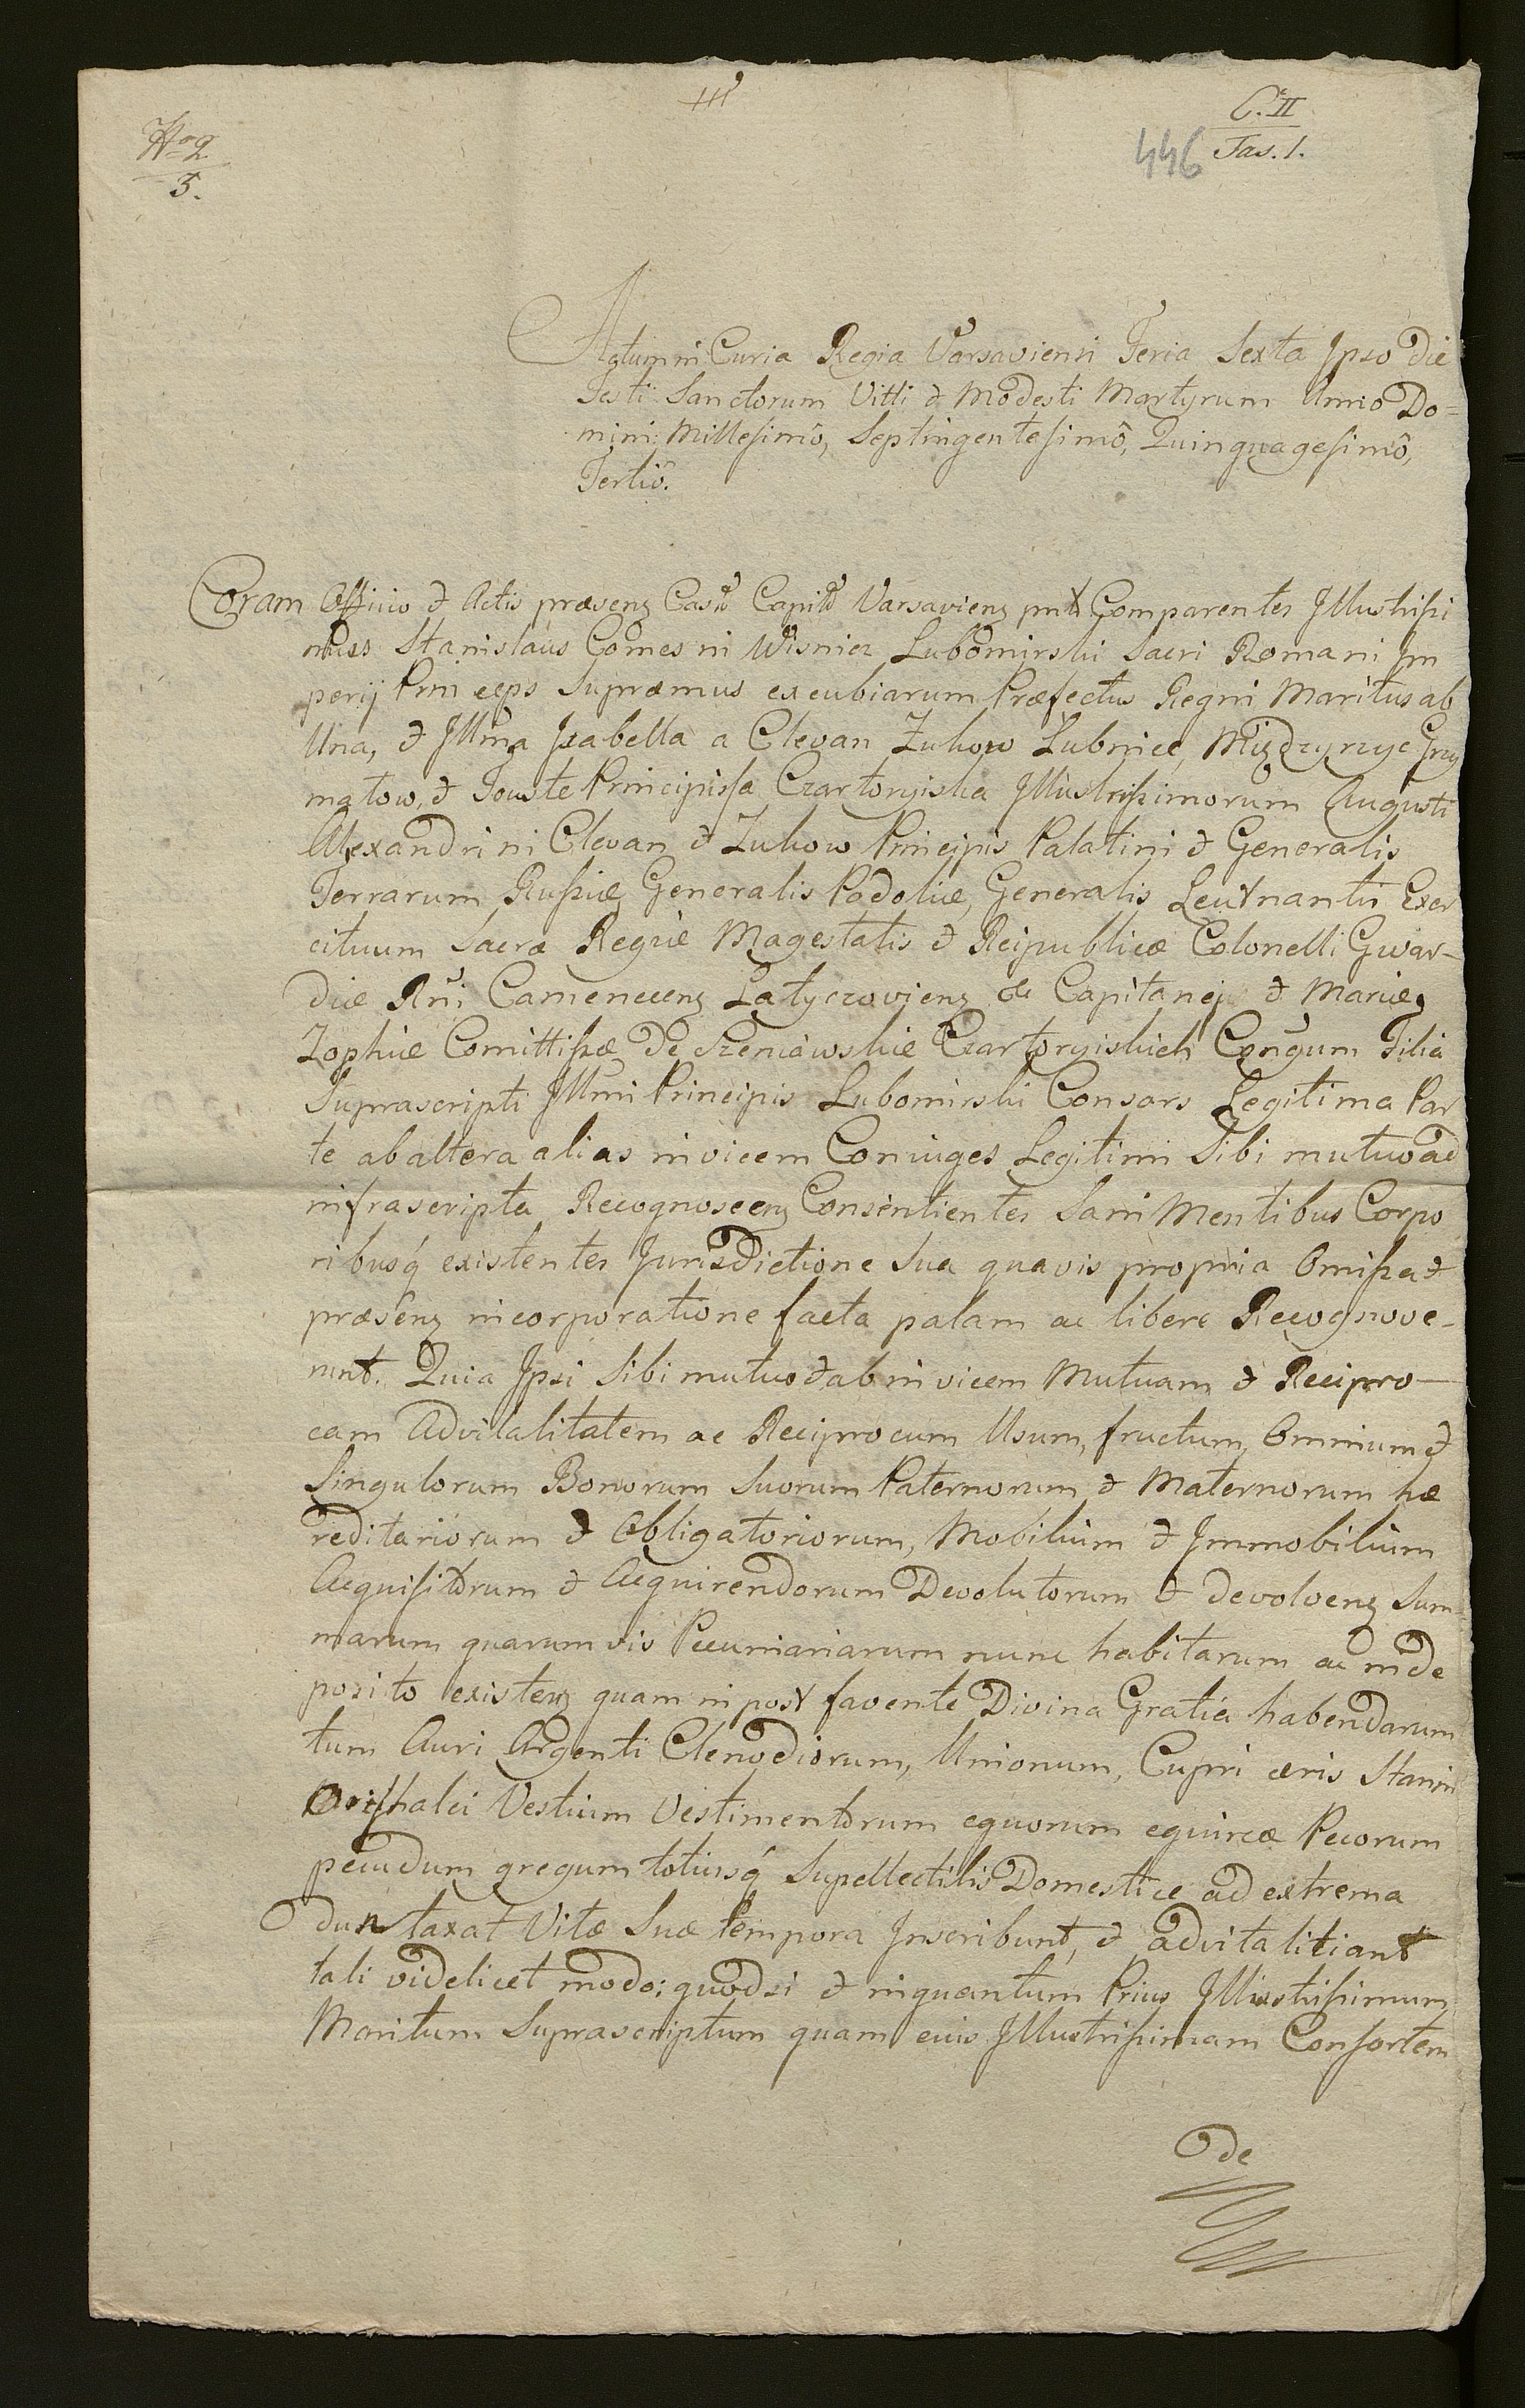 C. II
Fas. 1.
446
No 2
5.
Actum in Curia Regia Varsaviensi Feria Sexta Ipso die
Festi Sanctorum Vitti & Modesti Martyrum Anno Do=
mini Millesimô, Septingentesimô, Quinquagesimô,
Tertiô.
Coram Officio & Actis præsenz Cast Capit Varsavienz pnt Comparentes Illustrissi
muss Stanislaus Comes in Wisnicz Lubomirski Sacri Romani Im
perij Prin ceps Supræmus excubiarum Præfectus Regni Maritus ab
Una, & Illma Izabella a Clevan Zukow Lubnice, Międzyrzyc Grzy
matow, & Touste Principissa Czartoryiska Illustrissimorum Augusti
Alexandri in Clevan & Zukow Principis Palatini & Generalis
Terrarum Russiæ Generalis Podoliæ, Generalis Leutnantis Exer
cituum Sacræ Regiæ Magestatis & Reipublicæ Colonelli Gwar-
diæ Rni Camenecenz Latyczovienz & Capitanei & Mariæ
Zophiæ Comittissæ de Szeniawskie Czartoryiskich Congum Filia
Suprascripti Illmi Principis Lubomirski Consors Legitima Par
te ab altera alias invicem Coniuges Legitimi Sibi mutuo ad
infrascripta Recognoscenz Consentientes Sani Mentibus Corpo
ribusq́ existentes Jurisdictione Sua quavis propria Omissa &
præsenz incorporatione facta palam ac libere Recognove-
runt. Quia Ipsi Sibi mutuo & ab in vicem Mutuam & Recipro-
cam Advitalitatem ac Reciprocum Usum, fructum, Omnium &
Singulorum Bonorum Suorum Paternorum & Maternorum hæ
reditariorum & Obligatoriorum, Mobilium & Immobilium
Acquisitorum & Acquirendorum Devolutorum & devolvenz Sum
marum quarumvis Pecuniariarum nunc habitarum ac in de
posito existenz quam in post favente Divina Gratia habendarum
tum Auri Argenti Clenodiorum, Unionum, Cupri æris Stanni
Orichalci Vestium Vestimentorum equorum equireæ Pecorum
pecudum gregum totiusq́ Supellectilis Domesticæ ad extrema
duntaxat Vitæ Suæ tempora Inscribunt, & advitalitiant
tali videlicet modo: quodsi & inquantum Prius Illustrissimum
Maritum Suprascriptum quam eius Illustrissimam Consortem
de